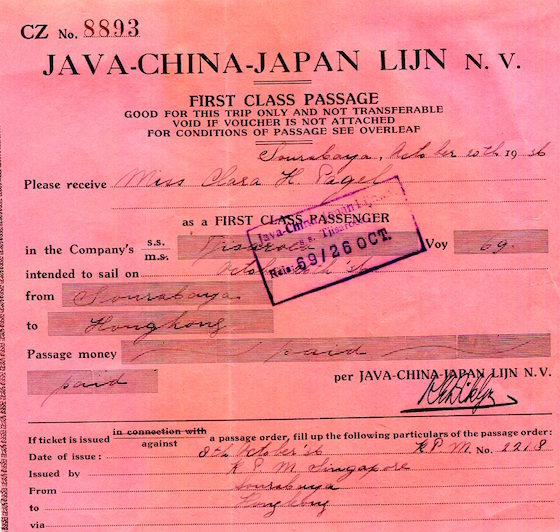 CZ No. 8893
JAVA-CHINA-JAPAN LIJN N. V.
FIRST CLASS PASSAGE
GOOD FOR THIS TRIP ONLY AND NOT TRANSFERABLE
VOID IF VOUCHER IS NOT ATTACHED
FOR CONDITIONS OF PASSAGE SEE OVERLEAF
Sourabaya, October 20th 1936
Please receive Miss Clara H. Pagel
as a FIRST CLASS PASSENGER
in the Company's s.s. m.s. Voy 69.
intended to sail on October '36
from Sourabaya
to Hongkong
Passage money paid
paid
per JAVA-CHINA-JAPAN LIJN N.V.
Java-China-Japan Lijn
s.s.
Reis: 69/26 OCT.
If ticket is issued in connection with against a passage order, fill up the following particulars of the passage order:
Date of issue: 8th October '36 K.P.M. No. 2218
Issued by K.P.M. Singapore
From Sourabaya
to Hongkong
via